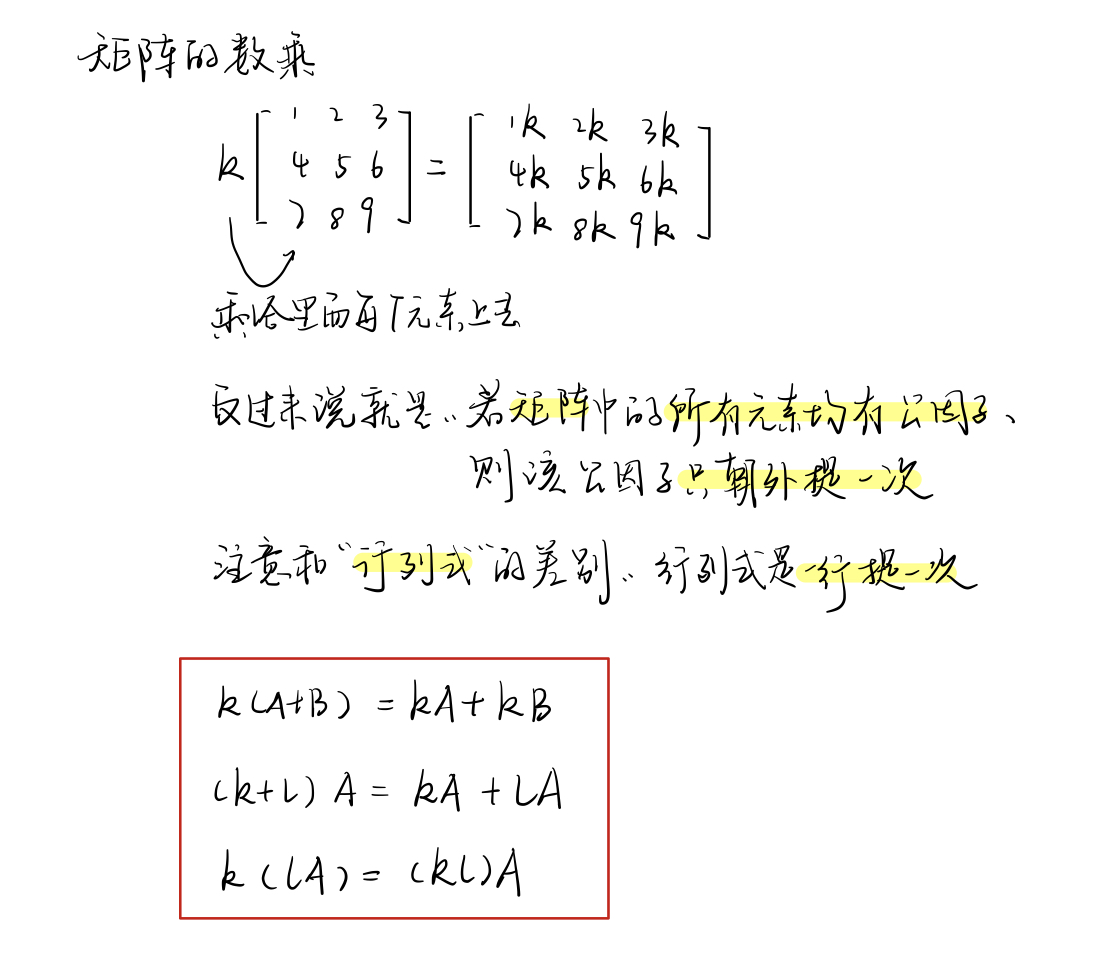 矩阵的数乘
k [ 1 2 3 ] = [ 1k 2k 3k ]
4 5 6 4k 5k 6k
7 8 9 7k 8k 9k
乘给里面每个元素上去
反过来说就是.. 若矩阵中的所有元素均有公因子、
则该公因子只朝外提一次
注意和“行列式”的差别.. 行列式是一行提一次
k(A+B) = kA+kB
(k+l) A = kA + lA
k(lA) = (kl)A